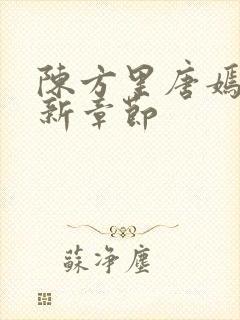 陳方罡唐嫣
新章節
蘇净塵